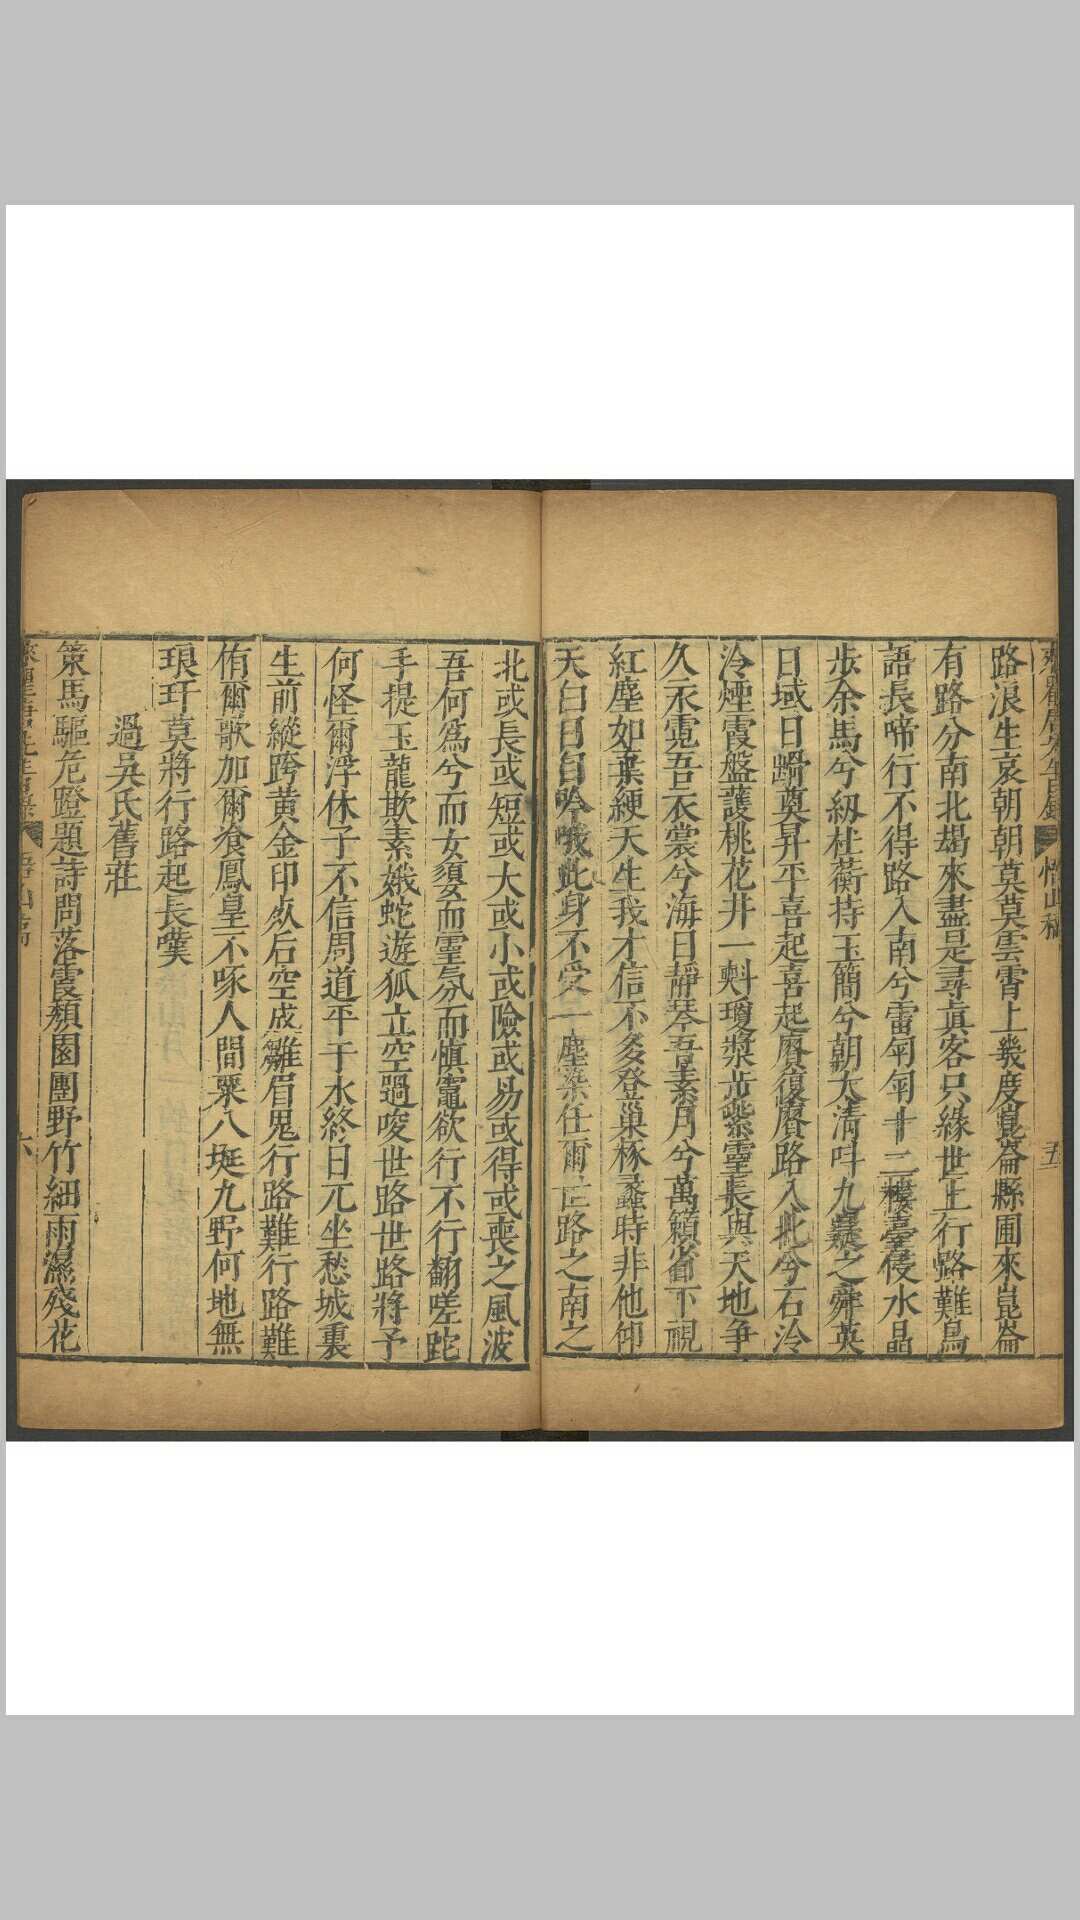 路浪生哀朝朝莫莫雲霄上幾度崑崙縣圃來崑崙
有路分南北朅來盡是尋真客只緣世上行路難鳥
語長啼行不得路入南兮雷匉匉十二樓臺侵水晶
步余馬兮紉杜蘅持玉簡兮朝太清叫九嶷之舜英
日域日躋奠昇平喜起喜起賡復賡路入北兮石泠
泠煙霞盤護桃花井一㪺瓊漿步紫靈長與天地爭
久永霓吾衣裳兮海日靜琴吾素月兮萬籟省卻下視
紅塵如棄綆天生我才信不多登巢椓蠡時非他仰
天白日自吟哦此身不受一塵染任爾世路之南之
北或長或短或大或小或險或易或得或喪之風波
吾何為兮而女嬃而靈氛而慎竈欲行不行翻嗟跎
手提玉龍欺素娥蛇遊狐立空過唆世路世路將予
何怪爾浮休子不信周道平于水終日兀坐愁城裏
生前縱跨黃金印歿后空成雛眉鬼行路難行路難
侑爾歌加爾飡鳳皇不啄人間粟八埏九野何地無
琅玕莫將行路起長嘆
過吳氏舊莊
策馬驅危蹬題詩問落霞頹園團野竹細雨濕殘花